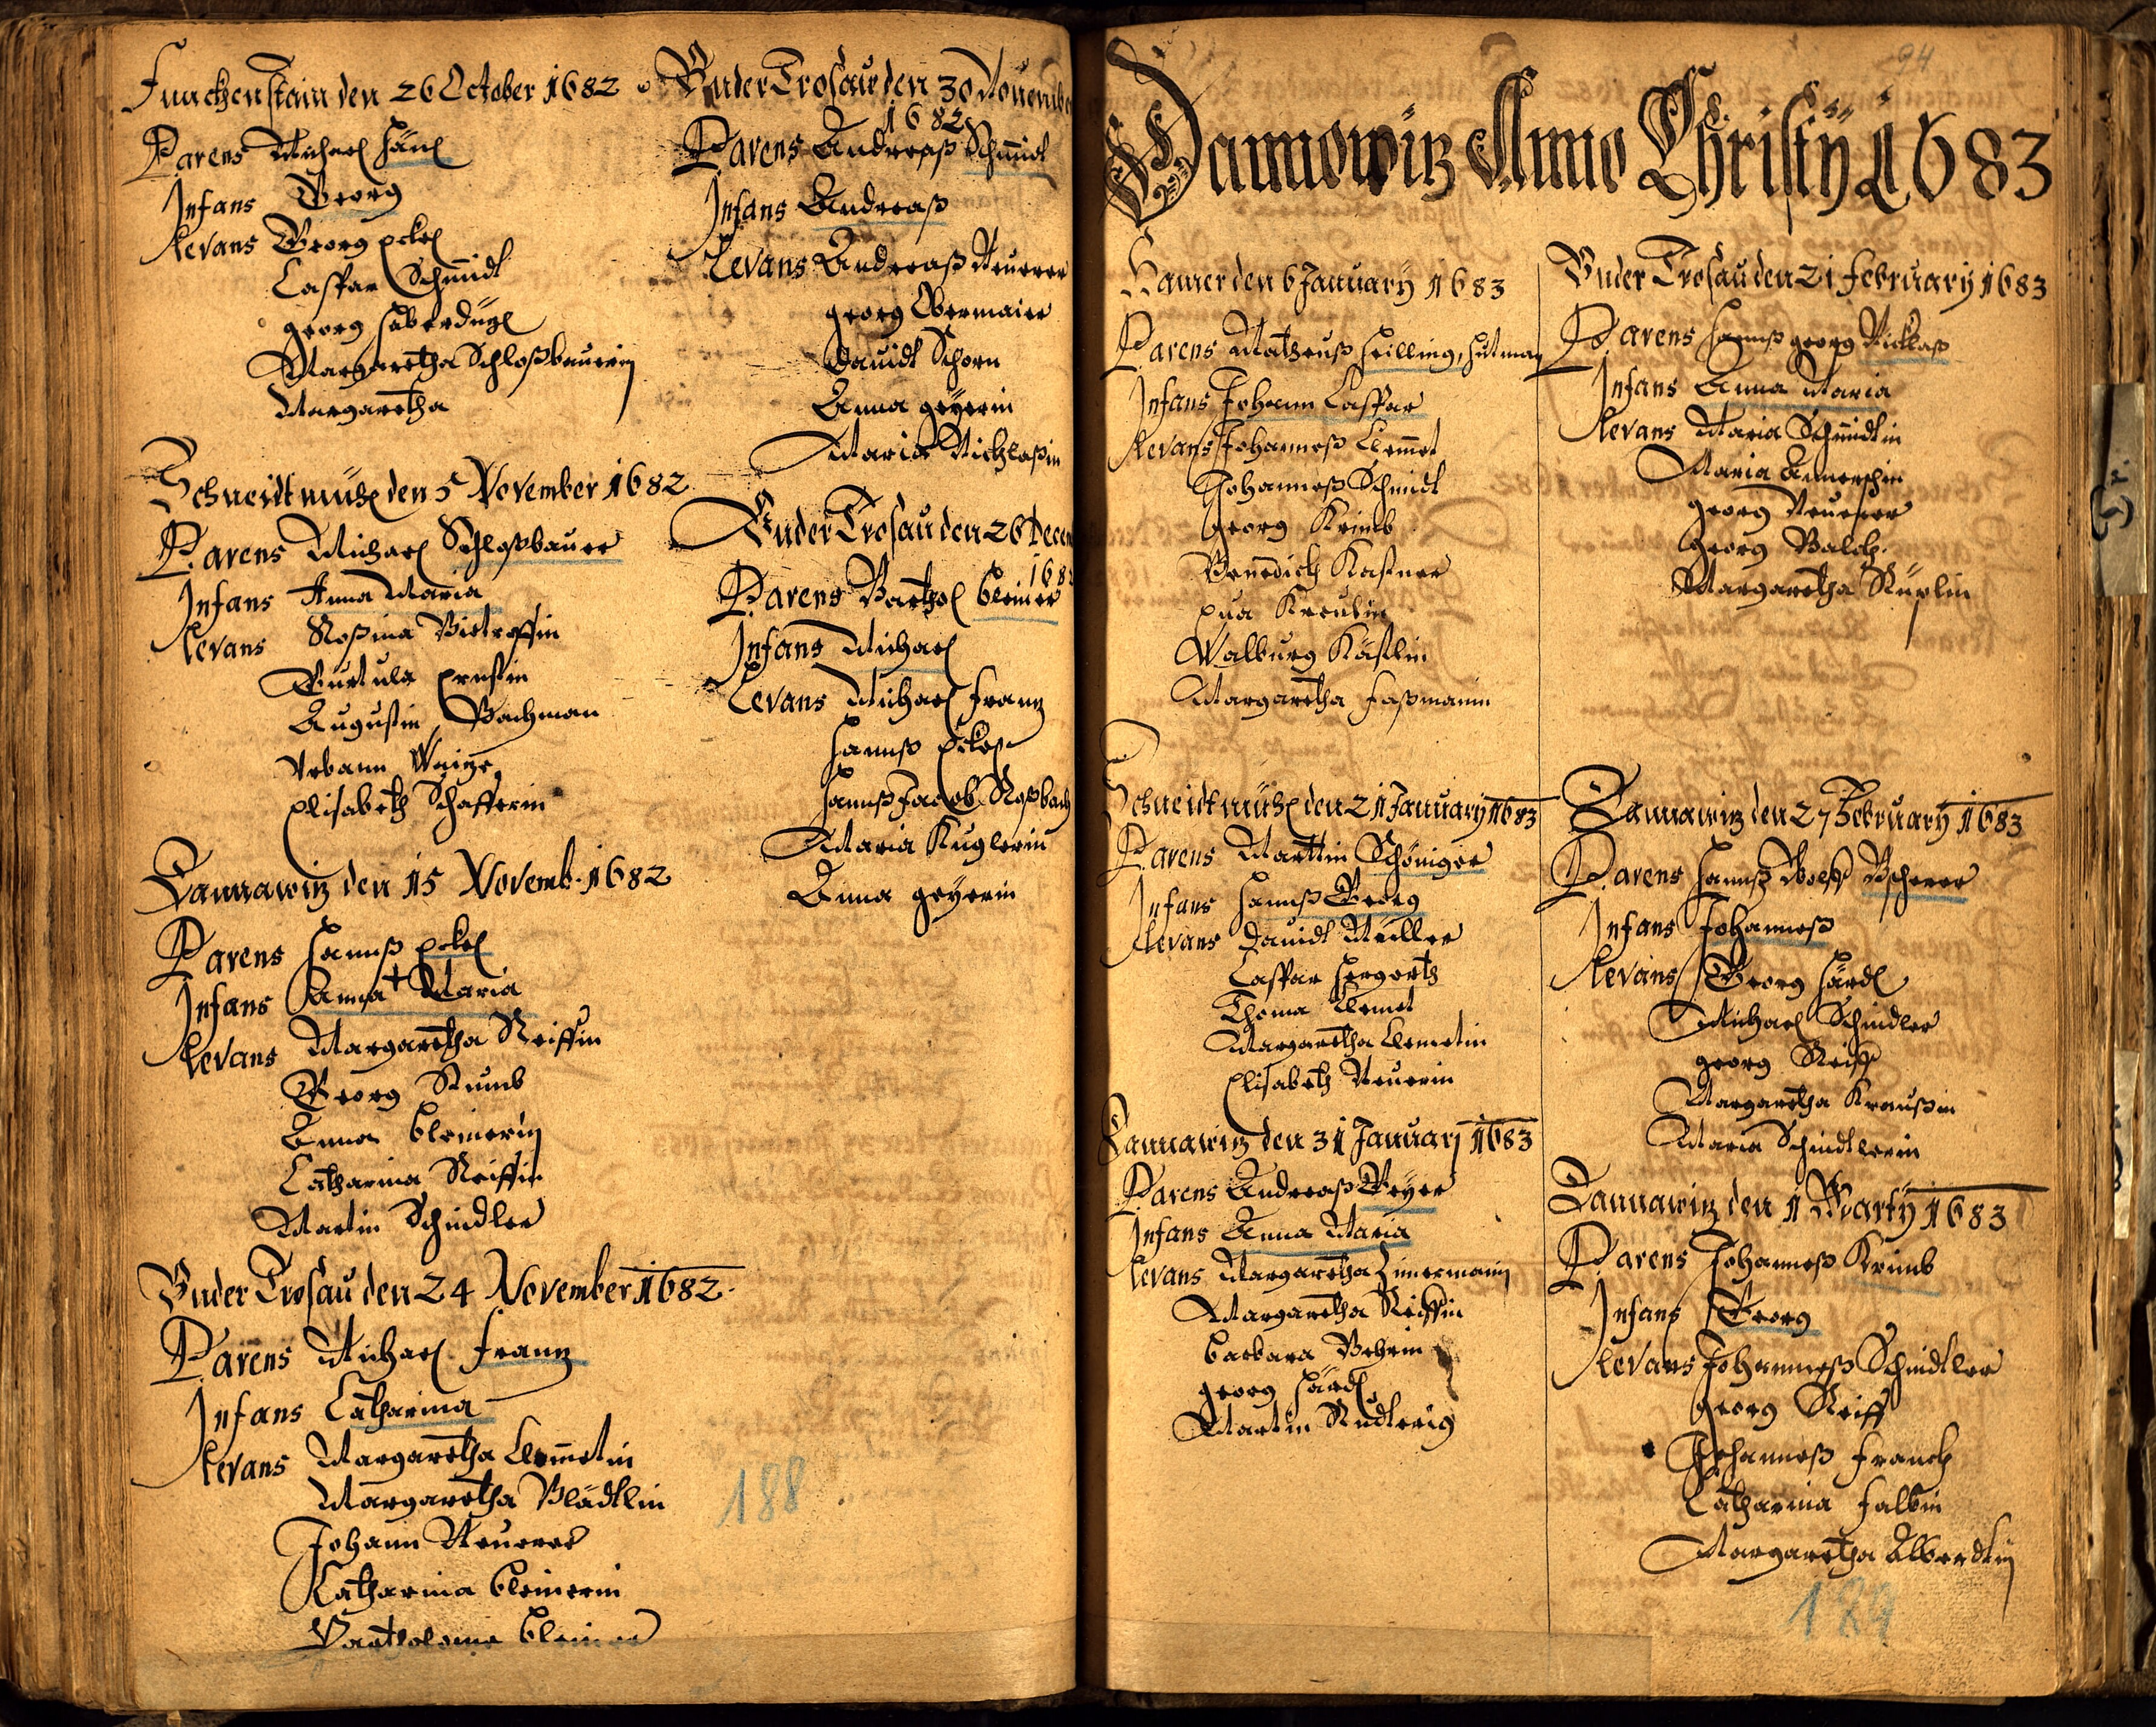 Funckenstain den 26 October 1682
Parens Michael
Infans Georg
Levans Georg Eckel
Caspar Schmidt
georg haberdützl
Margaretha Schloßbauerin
Margaretha
Schneidtmühl den 5 November 1682
Parens Michael Schloßbauer
Infans Anna Maria
Levans Roßina
Ernstin
Augustin Bachman
Urbann
Elisabeth Schafferin
Dannawitz den 15 Novemb. 1682
Parens Hannß Eckel
Infans Anna + Maria
Levans Margaretha Reiffin
Georg Kumb
Anna Cleinerin
Catharina Reiffin
Martin Schindler
Under Trosau den 24 November 1682
Parens Michael Frantz
Infans Catharina
Levans Margaretha Clemmetin
Margaretha Blädtlin
Johann Neuerer
Katharina Cleinerin
Bartholome Cleiner
Under Trosau den 30 November
1682
Parens Andreaß Schmidt
Infans Andreaß
Levans Andreaß Neuerer
georg Obermaier
Dauidt Schorn
Anna geyerin
Maria Nicklaßin
Under Trosau den 26 Decem
168
Parens Barthel Cleiner
Infans Michael
Levans Michael Frantz
Hannß Eckel
Hannß Jacob Roßbach
Maria Kuglerin
Anna geyerin
188
94
Dannowitz Anno Christÿ 1683
Hamer den 6 January 1683
Parens Matheuß Heilling, Hutman
Infans Johann Caspar
Levans Johanneß Clemmet
Johanneß Schmidt
Georg Krimb
Benedich Kastner
Eua Kreulin
Walburg Kästlin
Margaretha Faßmanin
Schneidtmühl den 21 January 1683
Parens Marttin Schöniger
Infans Hannß Georg
Levans Dauidt Müller
Caspar Hergertz
Thoma Clemet
Margaretha Clemetin
Elisabeth Neuerin
Dannawitz den 31 January 1683
Parens Andreaß Geyer
Infans Anna Maria
Levans Margaretha Zimermanin
Margaretha Reiffin
Barbara Behrin
georg Härdl
Martin
Under Trosau den 21 February 1683
Parens Hannß georg Nicklaß
Infans Anna Maria
Levans Maria Schmidtin
Maria
georg Neuerer
georg Balch
Margaretha
Dannawitz den 27 February 1683
Parens Hannß Wolff
Infans Johanneß
Levans Georg Härdl
Michael Schindler
georg Reiff
Margaretha Kraußin
Maria Schindtlerin
Dannawitz den 1 Martÿ 1683
Parens Johanneß Krimb
Infans Georg
Levans Johanneß Schindtler
georg Reiff
Johanneß Franck
Catharina Falbin
Margaretha Alberdtin
189